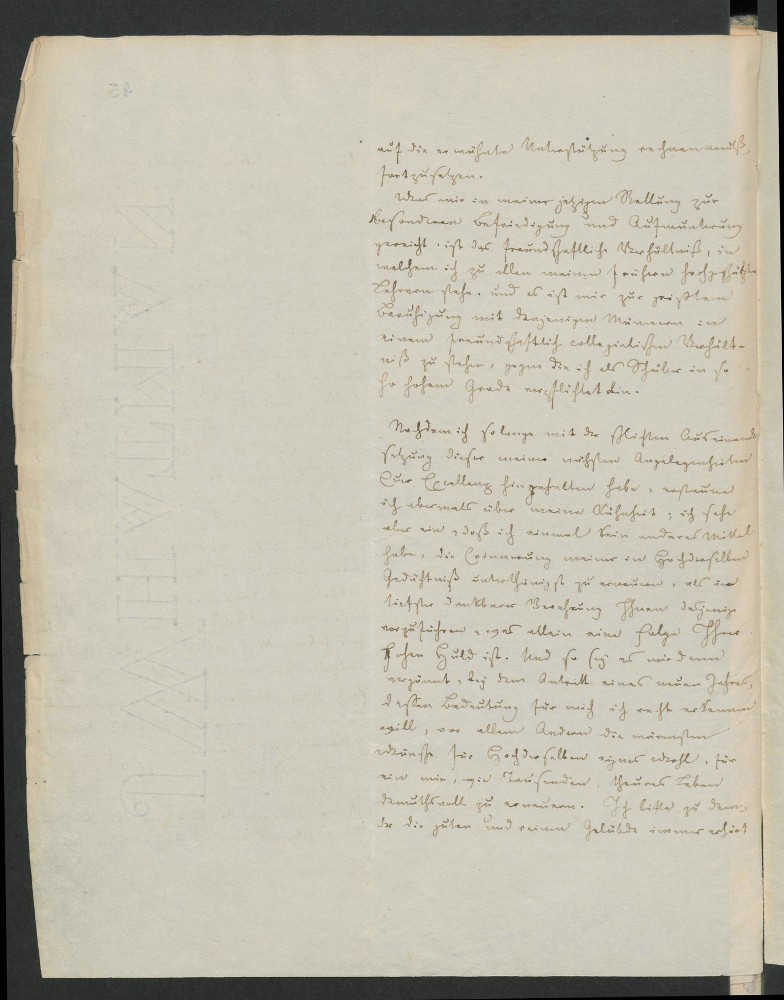 45
auf die erwähnte Unterstützung rechnen muß,
fortzusetzen.
Was mir in meiner jetzigen Stellung zur
besonderen Befriedigung und Aufmunterung
gereicht, ist das freundschaftliche Verhältniß, in
welchem ich zu allen meinen frühern hochgeschätzten
Lehrern stehe, und es ist mir zur größten
Beruhigung mit denjenigen Männern in
einem freundschaftlich collegialischen Verhält-
niß zu stehen, gegen die ich als Schüler in so
ho hohem Grade verpflichtet bin.
Nachdem ich so lange mit der schlichten Auseinander
setzung dieser meiner nächsten Angelegenheiten
Euer Excellenz hingehalten habe, erstaune
ich abermals über meine Kühnheit; ich sehe
aber ein, daß ich einmal kein anderes Mittel
habe, die Erinnerung meiner in Hochderselben
Gedächtniß unterthänigst zu erneuern, als in
tiefster dankbarer Verehrung Ihnen dasjenige
vorzuführen, was allein eine Folge Ihrer
hohen Huld ist. Und so sey es mir denn
vergönnt, bey dem Antritt eines neuen Jahres,
dessen Bedeutung für mich ich recht erkennen
will, vor allem Andern die wärmsten
Wünsche für Hochderselben eignes Wohl, für
ein mir, wie Tausenden, theures Leben
demuthsvoll zu erneuern. Ich bitte zu dem,
der die guten und reinen Gelübde immer erhört